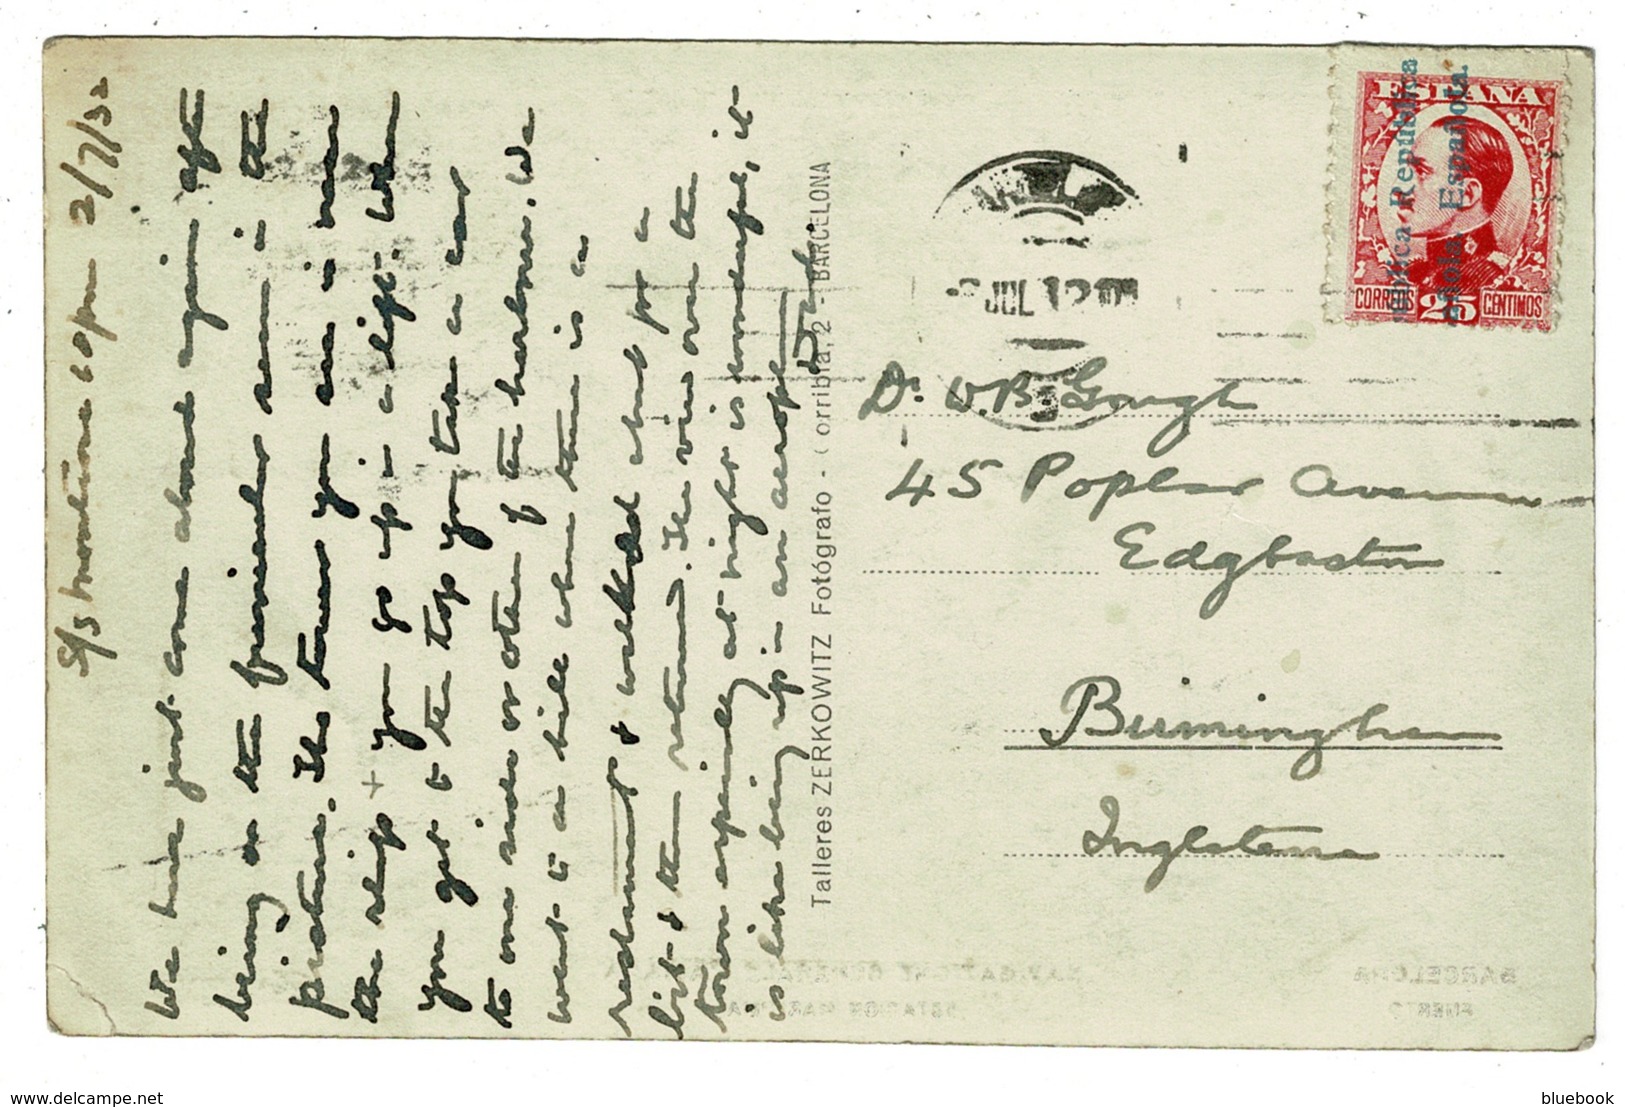 S/S 6 pm 2/7/32
We have just come aboard again after
being on the funicular seen in the
picture. The tower you see is near
the ship + you go up in a lift. When
you get to the top you take a car
to one side or other of the harbour. We
went to a hill where there is a
restaurant & walked about for a
bit & then returned. The view over the
town especially at night is wonderful, it
is like being up in an aeroplane
Talleres ZERKOWITZ Fotógrafo - Corribia, 2 - BARCELONA
ESPAÑA
República Española.
CORREOS 25 CENTIMOS
JUL
Dr. W.B. Gough
45 Poplar Avenue
Edgbaston
Birmingham
Inglaterra
BARCELONA
PUERTO
ESTACION MARITIMA
delcampe.net
bluebook